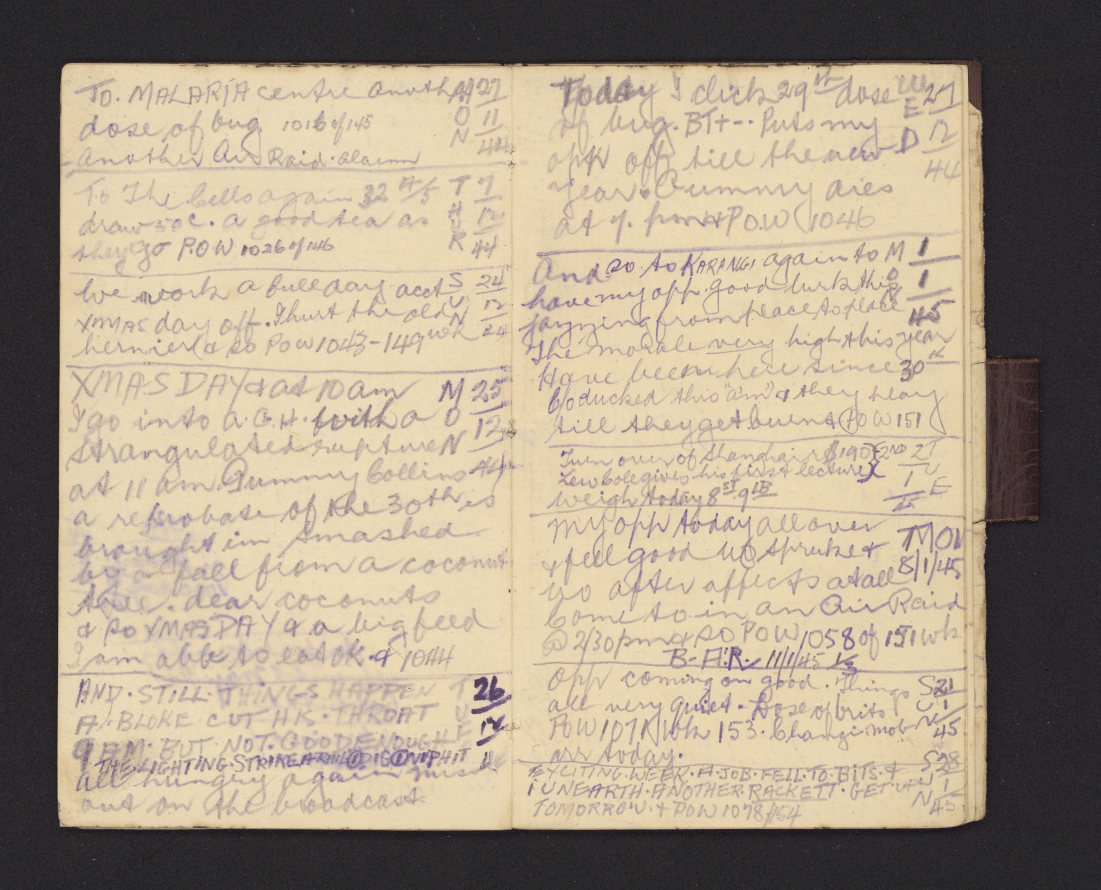 TO. MALARIA centre another M 27
dose of bug. 1016 of 145 O 11
Another Air Raid. alarm N 44
To The Cells again T 7
draw 50c. a good tea as H 12
they go P.O.W 1026 of 146 R 44
We work a full day acct S 24
XMAS day off. I hurt the old U 12
hernier & so POW 1043-149 wk N 44
XMAS DAY & at 10 am M 25
I go into A.G.H. with a O 12
strangulated rupture N 44
at 11 am. Gummy Collins
a reprobate of the 30th is
brought in smashed
by a fall from a coconut
tree. dear coconuts
& so XMAS DAY & a big feed
I am able to eat OK. & 1044
AND. STILL THINGS HAPPEN T 26
A. BLOKE CUT HIS. THROAT U 12
9 AM. BUT. NOT. GOOD ENOUGH E
THE LIGHTING. STRIKE
all hungry again miss
out on the broadcast
Today I click 29th dose W 27
of bug. BT+-. Puts my E 12
opp off till the new D 44
year. Gummy dies
at 7. pm & P.O.W 1046
And so to KARANGI again to M 1
have my opp good luck this O 1
from place to place N 45
The morale very high this year
Have been here since 30th
ducked this "am" & they
till they get burnt (POW 151)
Turn over of Shanghai $190 2nd 2 T
Lew Cole gives his first lecture 1 U
weigh today 8 st 9 lb 45 E
My opp today all over MON
& feel good 8/1/45
no after affects at all
Come to in an Air Raid
@ 2/30 pm & so POW 1058 of 151 wk
B-A.R 11/1/45
opp coming on good. Things S 21
all very quiet. Dose of brits U 1
POW 1071 wk 153. Changi. mob N 45
arr today.
EXCITING. WEEK. A. JOB. FELL. TO. BITS. & S 28
I UNEARTH. ANOTHER. RACKETT. GET. U 1
TOMORROW. & POW 1078/154 N 45